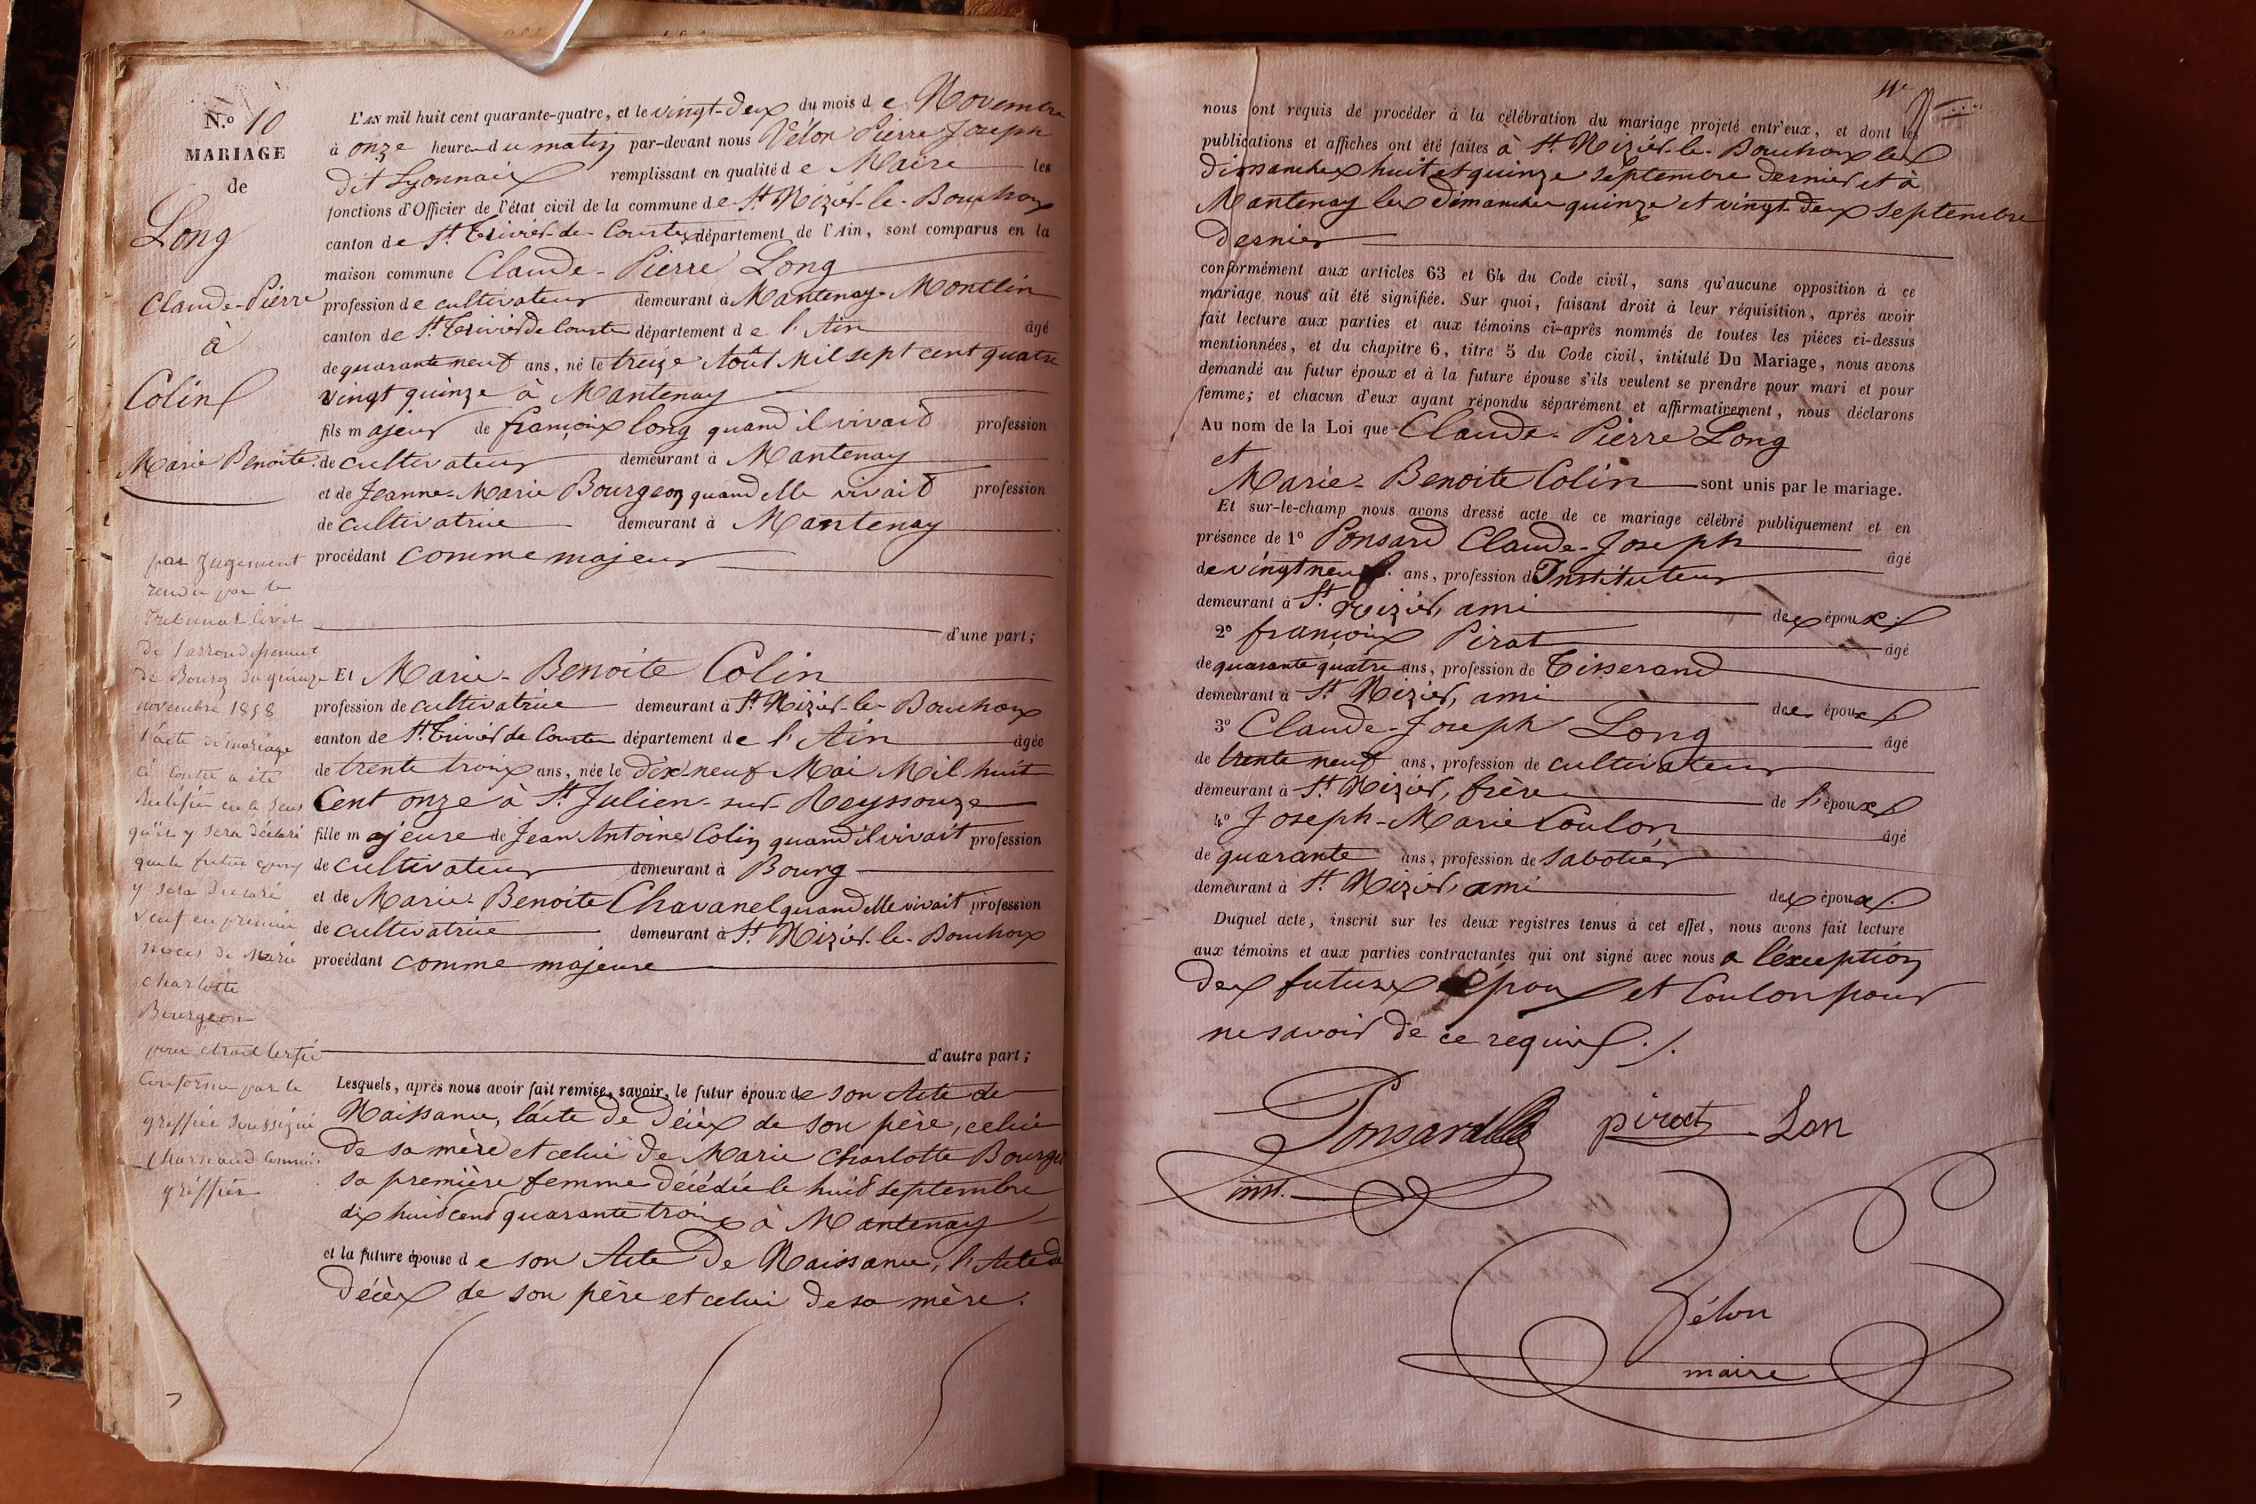 N.º 10
MARIAGE
de
Long
Claude-Pierre
à
Colin
Marie Benoite.
par Jugement
rendu par le
tribunal Civil
de l'arrondissement
de Bourg du quinze
novembre 1858
l'acte de mariage
ci contre a été
Rectifié en ce sens
qu'il y sera déclaré
que le futur epoux
y sera Declaré
veuf en premier
noces de Marie
charlotte
Bourgeon
pour extrait Certifié
Conforme par le
greffier soussigné
greffier
L'AN mil huit cent quarante-quatre, et le vingt-deux du mois de Novembre
à onze heure du matin par-devant nous Vélon Pierre Joseph
dit Lyonnais remplissant en qualité de Maire les
fonctions d'Officier de l'état civil de la commune de St Nizier-le-Bouchoux
canton de St Trivier-de-Courtes, département de l'Ain, sont comparus en la
maison commune Claude-Pierre Long
profession de cultivateur demeurant à Mantenay-Montlin
canton de St Trivier de Courtes département de l'Ain âgé
de quarante neuf ans, né le treize Août Mil sept cent quatre
vingt quinze à Mantenay
fils majeur de françois long quand il vivait profession
de cultivateur demeurant à Mantenay
et de Jeanne-Marie Bourgeon quand elle vivait profession
de cultivatrice demeurant à Mantenay
procédant comme majeur
d'une part;
Et Marie-Benoite Colin
profession de cultivatrice demeurant à St Nizier-le-Bouchoux
canton de St Trivier de Courtes département de l'Ain âgée
de trente trois ans, née le dix-neuf Mai Mil huit
Cent onze à St Julien-sur-Reyssouze
fille majeure de Jean Antoine Colin quand il vivait profession
de cultivateur demeurant à Bourg
et de Marie-Benoite Chavanel quand elle vivait profession
de cultivatrice demeurant à St Nizier-le-Bouchoux
procédant comme majeure
d'autre part;
Lesquels, après nous avoir fait remise, savoir, le futur époux de son Acte de
Naissance, l'acte de décès de son père, celui
de sa mère et celui de Marie Charlotte
sa première femme décédée le huit septembre
dix huit cent quarante trois à Mantenay
et la future épouse de son Acte de Naissance, l'Acte de
décès de son père et celui de sa mère.
nous ont requis de procéder à la célébration du mariage projeté entr'eux, et dont les
publications et affiches ont été faites à St Nizier-le-Bouchoux les
dimanches huit et quinze septembre dernier et à
Mantenay les dimanches quinze et vingt-deux septembre
dernier
conformément aux articles 63 et 64 du Code civil, sans qu'aucune opposition à ce
mariage nous ait été signifiée. Sur quoi, faisant droit à leur réquisition, après avoir
fait lecture aux parties et aux témoins ci-après nommés de toutes les pièces ci-dessus
mentionnées, et du chapitre 6, titre 5 du Code civil, intitulé Du Mariage, nous avons
demandé au futur époux et à la future épouse s'ils veulent se prendre pour mari et pour
femme; et chacun d'eux ayant répondu séparément et affirmativement, nous déclarons
Au nom de la Loi que Claude-Pierre Long
et
Marie-Benoite Colin sont unis par le mariage.
Et sur-le-champ nous avons dressé acte de ce mariage célébré publiquement et en
présence de 1º Ponsard Claude-Joseph âgé
de vingt neuf ans, profession d'Instituteur
demeurant à St Nizier, ami des époux.
2º françois Pirat âgé
de quarante quatre ans, profession de Tisserand
demeurant à St Nizier, ami des époux.
3º Claude-Joseph Long âgé
de trente neuf ans, profession de cultivateur
demeurant à St Nizier, frère de l'époux
4º Joseph-Marie Coulon âgé
de quarante ans, profession de sabotier
demeurant à St Nizier, ami des époux.
Duquel acte, inscrit sur les deux registres tenus à cet effet, nous avons fait lecture
aux témoins et aux parties contractantes qui ont signé avec nous a l'éxception
des futurs époux et Coulon pour
ne savoir de ce requis./.
Ponsard pirat Lon
inst.
Vélon
maire